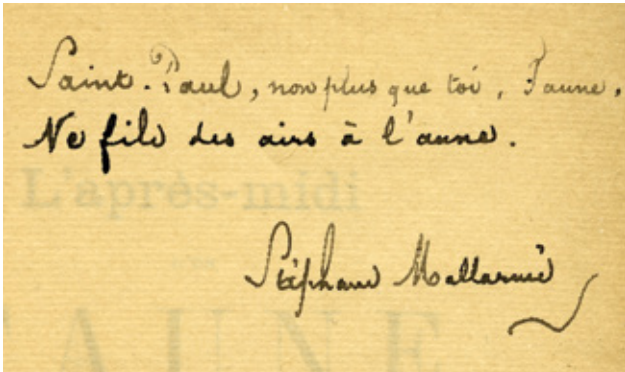 Saint-Paul, non plus que toi, Faune,
Ne file des airs à l'aune.
L'après-midi
Stéphane Mallarmé
FAUNE